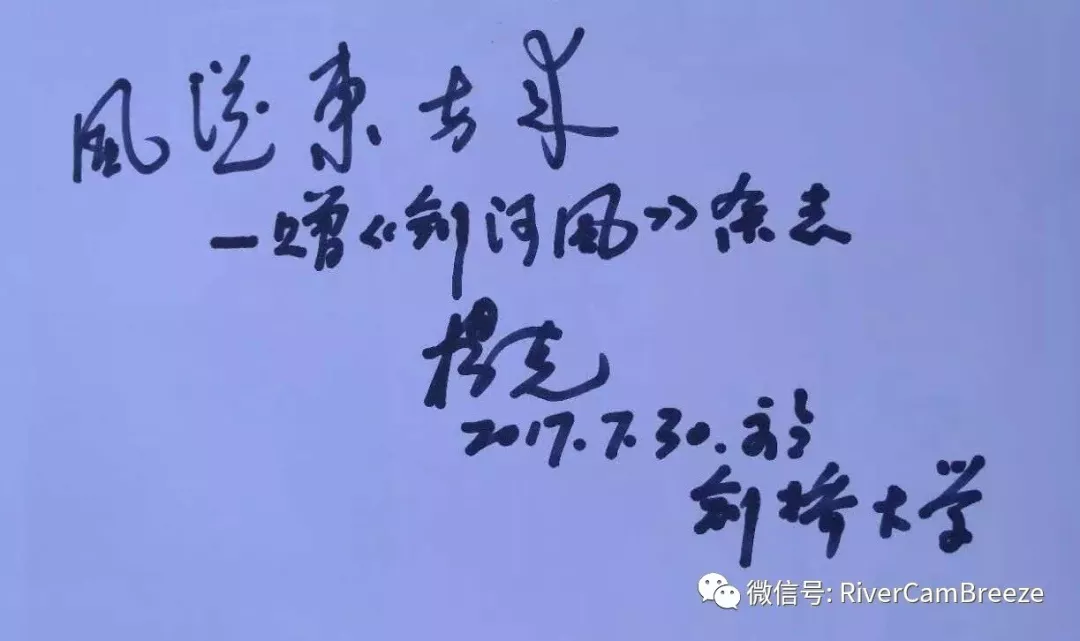 風從東方来
—赠《剑河风》杂志
杨克
2017.7.30.於
剑桥大学
微信号: RiverCamBreeze